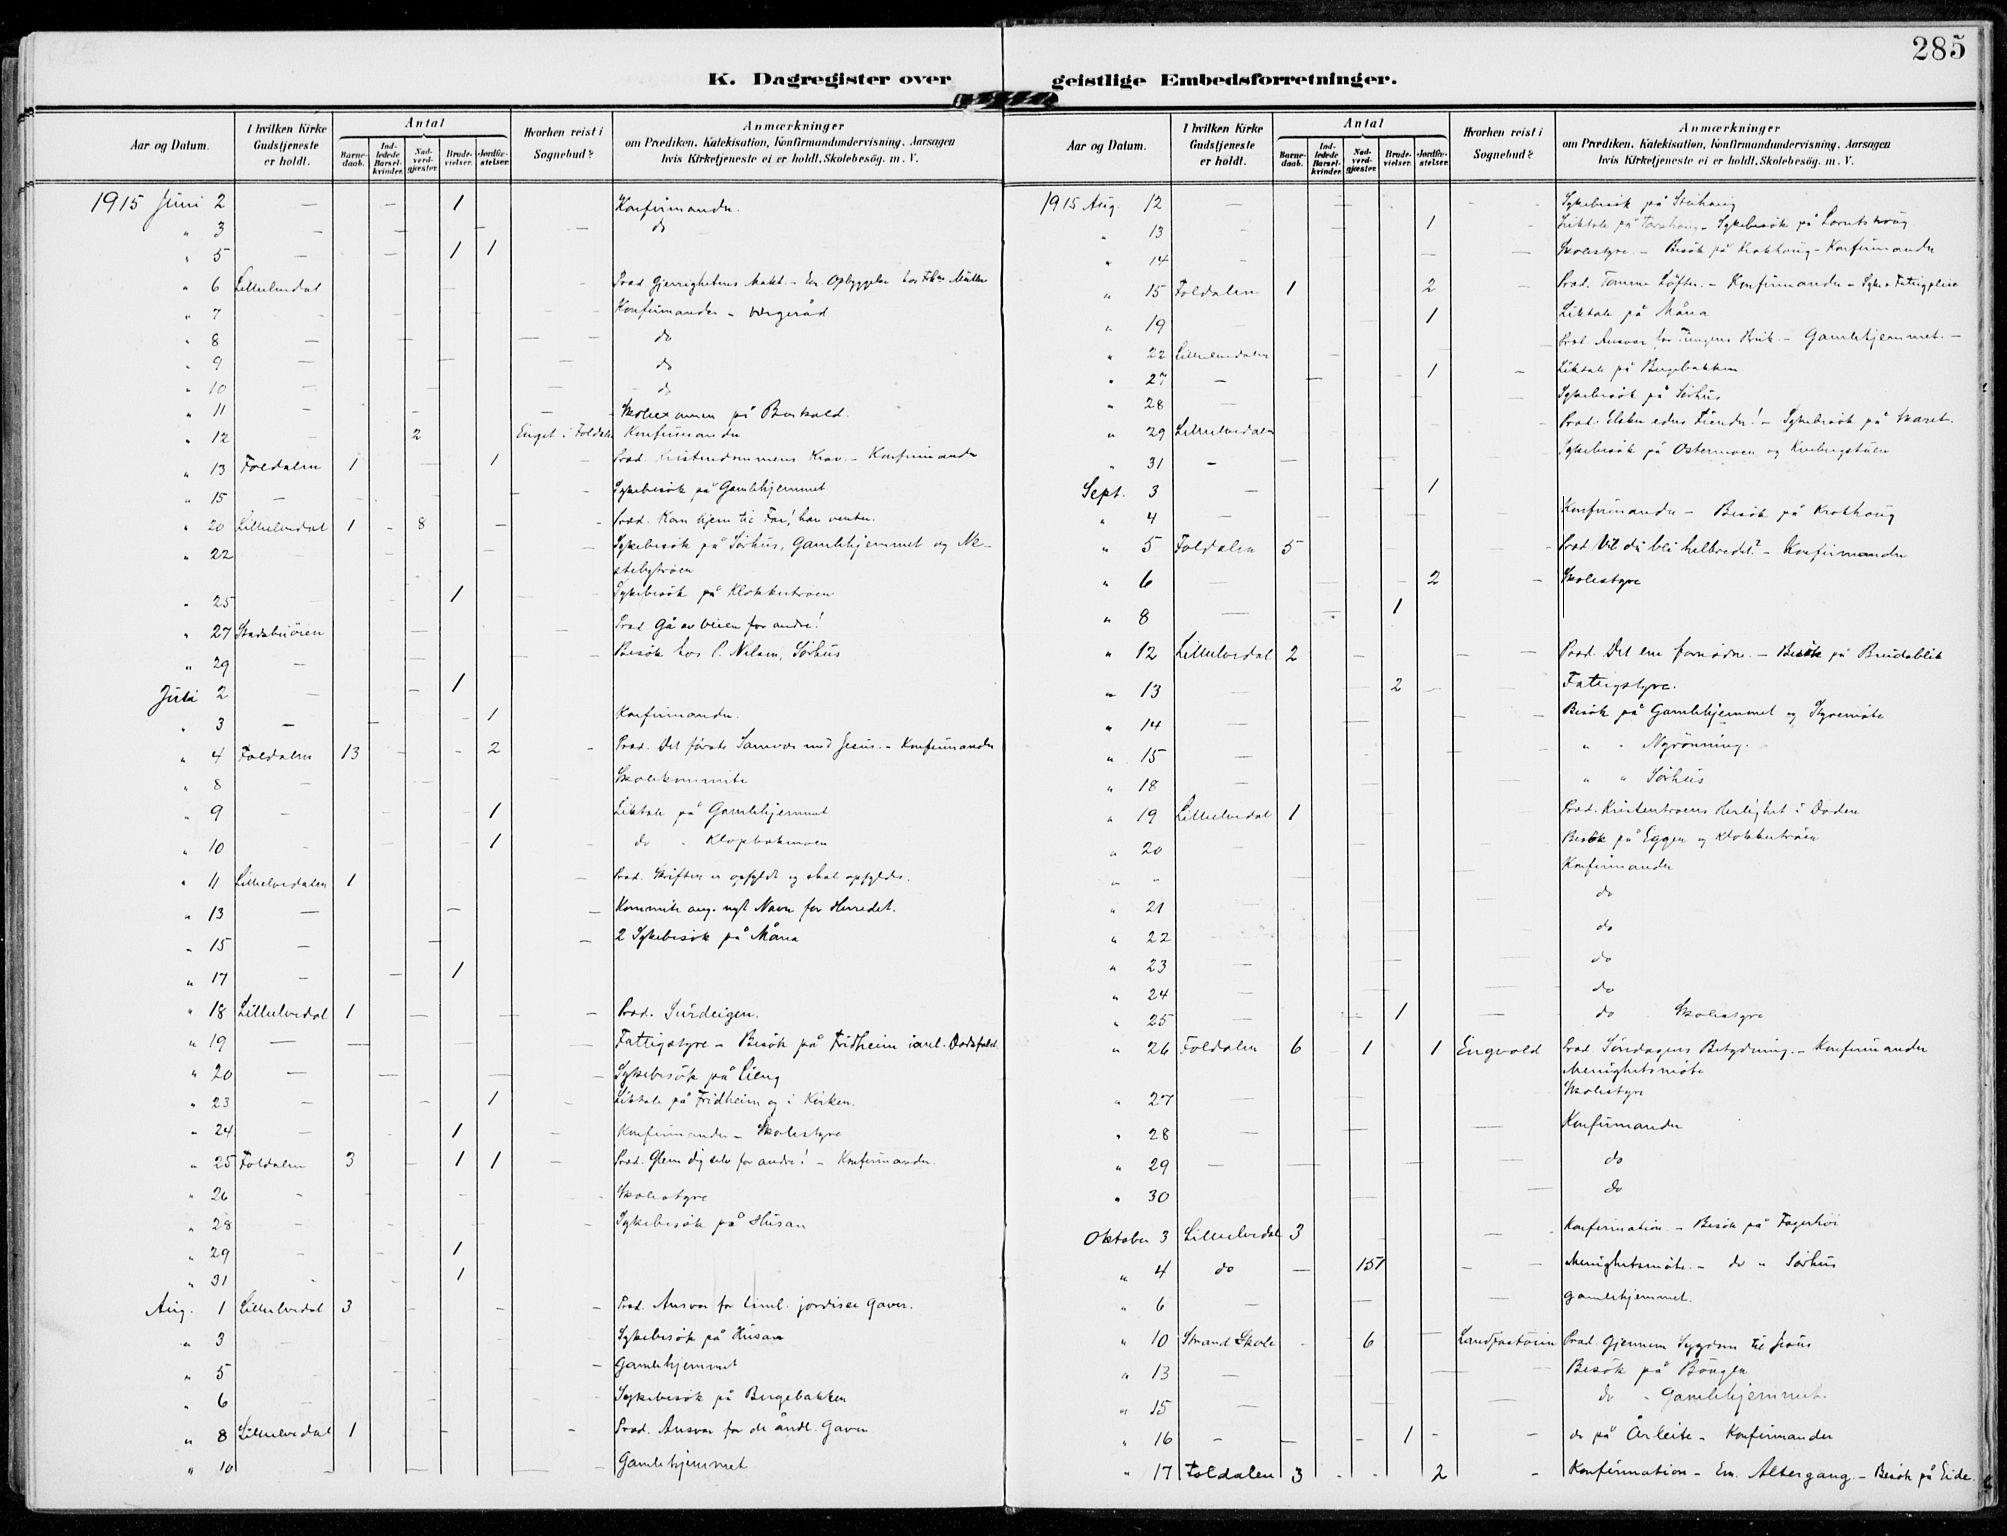 285
K. Dagregister over geistlige Embedsforretninger.
Aar og Datum. I hvilken Kirke Gudstjeneste er holdt. Antal Barnedaab. Indledede Barselkvinder. Nadverdgjæster. Brudevielser. Jordfæstelser. Hvorhen reist i Sognebud? Anmærkninger om Prædiken, Katekisation, Konfirmandundervisning, Aarsagen hvis Kirketjeneste ei er holdt, Skolebesög, m. V.
1915 Juni 2 — — 1 Konfirmander.
" 3 — — — do
" 5 — — 1 1
" 6 Lilleelvedal Præd. Gjerrighetens Makt. - Em. Opbyggelse hos Müller
" 7 — Konfirmander - Vergeråd
" 8 — do
" 9 — do
" 10 — do
" 11 — Skoleexamen på
" 12 — 2 Enget i Foldalen Konfirmander
" 13 Foldalen 1 — 1 Præd. Kristendommens Krav. - Konfirmander
" 15 — Sykebesök på Gamlehjemmet
" 20 Lilleelvedal 1 - 8 — Præd. Kom hjem til Far! han venter.
" 22 — Sykebesök på Sörhus, Gamlehjemmet og Ne-
stebytröen
" 25 1 Sykebesök på Klokkertröen
" 27 Stadsbuöien Præd Gå av veien for andre!
" 29 — Besök hos P. Nilsen, Sörhus
Juli 2 — 1
" 3 — 1 Konfirmander.
" 4 Foldalen 13 - - 2 Præd. Det förste Samvær med Jesus. - Konfirmander
" 8 — Skolekommite
" 9 - 1 Liktale på Gamlehjemmet
" 10 - 1 do "
" 11 Lilleelvedalen 1 Præd. Skriften er opfyldt og skal opfyldes.
" 13 — Kommite ang. nyt Navn for Herredet.
" 15 — 2 Sykebesök på Måna
" 17 — 1
" 18 Lilleelvedal 1 — Præd. Surdeigen.
" 19 — Fattigstyre - Besök på Fridheim i anl. Dödsfald.
" 20 — Sykebesök på Lieng
" 23 — 1 Liktale på Fridheim og i Kirken.
" 24 1 Konfirmander - Skolestyre
" 25 Foldalen 3 - 1 1 - Præd. Glem dig selv for andre! - Konfirmander.
" 26 - Skolestyre
" 28 - Sykebesök på Husan
" 29 - 1
" 31 1
Aug. 1 Lilleelvedal 3 — Præd. Ansvar for timl. jordiske Gaver.
" 3 — Sykebesök på Husan
" 5 — Gamlehjemmet
" 6 — Sykebesök på Bergebakken
" 8 Lilleelvedal 1 - Præd. Ansvar for de åndl. Gaver
" 10 — Gamlehjemmet
Aar og Datum. I hvilken Kirke Gudstjeneste er holdt. Antal Barnedaab. Indledede Barselkvinder. Nadverdgjæster. Brudevielser. Jordfæstelser. Hvorhen reist i Sognebud? Anmærkninger om Prædiken, Katekisation, Konfirmandundervisning, Aarsagen hvis Kirketjeneste ei er holdt, Skolebesög, m. V.
1915 Aug. 12 — Sykebesök på
" 13 — 1 Liktale på - Sykebesök på
" 14 — Skolestyre. - Besök på Krokhaug - Konfirmander
" 15 Foldalen 1 2 - Præd. Tomme Löfter. - Konfirmander -
" 19 1 Liktale på Måna
" 22 Lilleelvedalen Præd Ansvar for Tungens Bruk. - Gamlehjemmet. -
" 27 — 1 Liktale på Bergebakken
" 28 — Sykebesök på Sörhus
" 29 Lilleelvedalen Præd. Elsker eders Fiender! - Sykebesök på
" 31 - Sykebesök på Ostermoen og Kvebergstuen
Sept. 3 — 1
" 4 — Konfirmander - Besök på Krokhaug
" 5 Foldalen 5 Præd Vil du bli helbredet? - Konfirmander
" 6 — 2 Skolestyre
" 8 — 1
" 12 Lilleelvedal 2 — Præd. Det ene fornödne. - Besök på Breidablik
" 13 2 Fattigstyre.
" 14 — Besök på Gamlehjemmet og Styremöte
" 15 — " " Nyrönning.
" 18 — " " Sörhus
" 19 Lilleelvedal 1 Præd. Kristentroens Herlighet i Döden
" 20 — Besök på Eggen og Klokkertröen
" " Konfirmander
" 21 — do
" 22 — do
" 23 — do
" 24 — do
" 25 — 1 do Skolestyre
" 26 Foldalen 6 - 1 1 Engvold Præd. Söndagens Betydning. - Konfirmander
Menighetsmöte
" 27 — Skolestyre
" 28 — Konfirmander
" 29 — do
" 30 — do
Oktober 3 Lilleelvedal 3 Konfirmation. - Besök på Fagerhöi
" 4 do — 151 Menighetsmöte. - do " Sörhus
" 6 — Gamlehjemmet.
" 10 Strand Skole - 6 Præd. Gjennem Sygdom til Jesus
" 13 — Besök på
" 15 — do " Gamlehjemmet.
" 16 - 1 - do på Årleite - Konfirmander
" 17 Foldalen 3 - - 2 - Konfirmation - Em. Altergang - Besök på Eide.